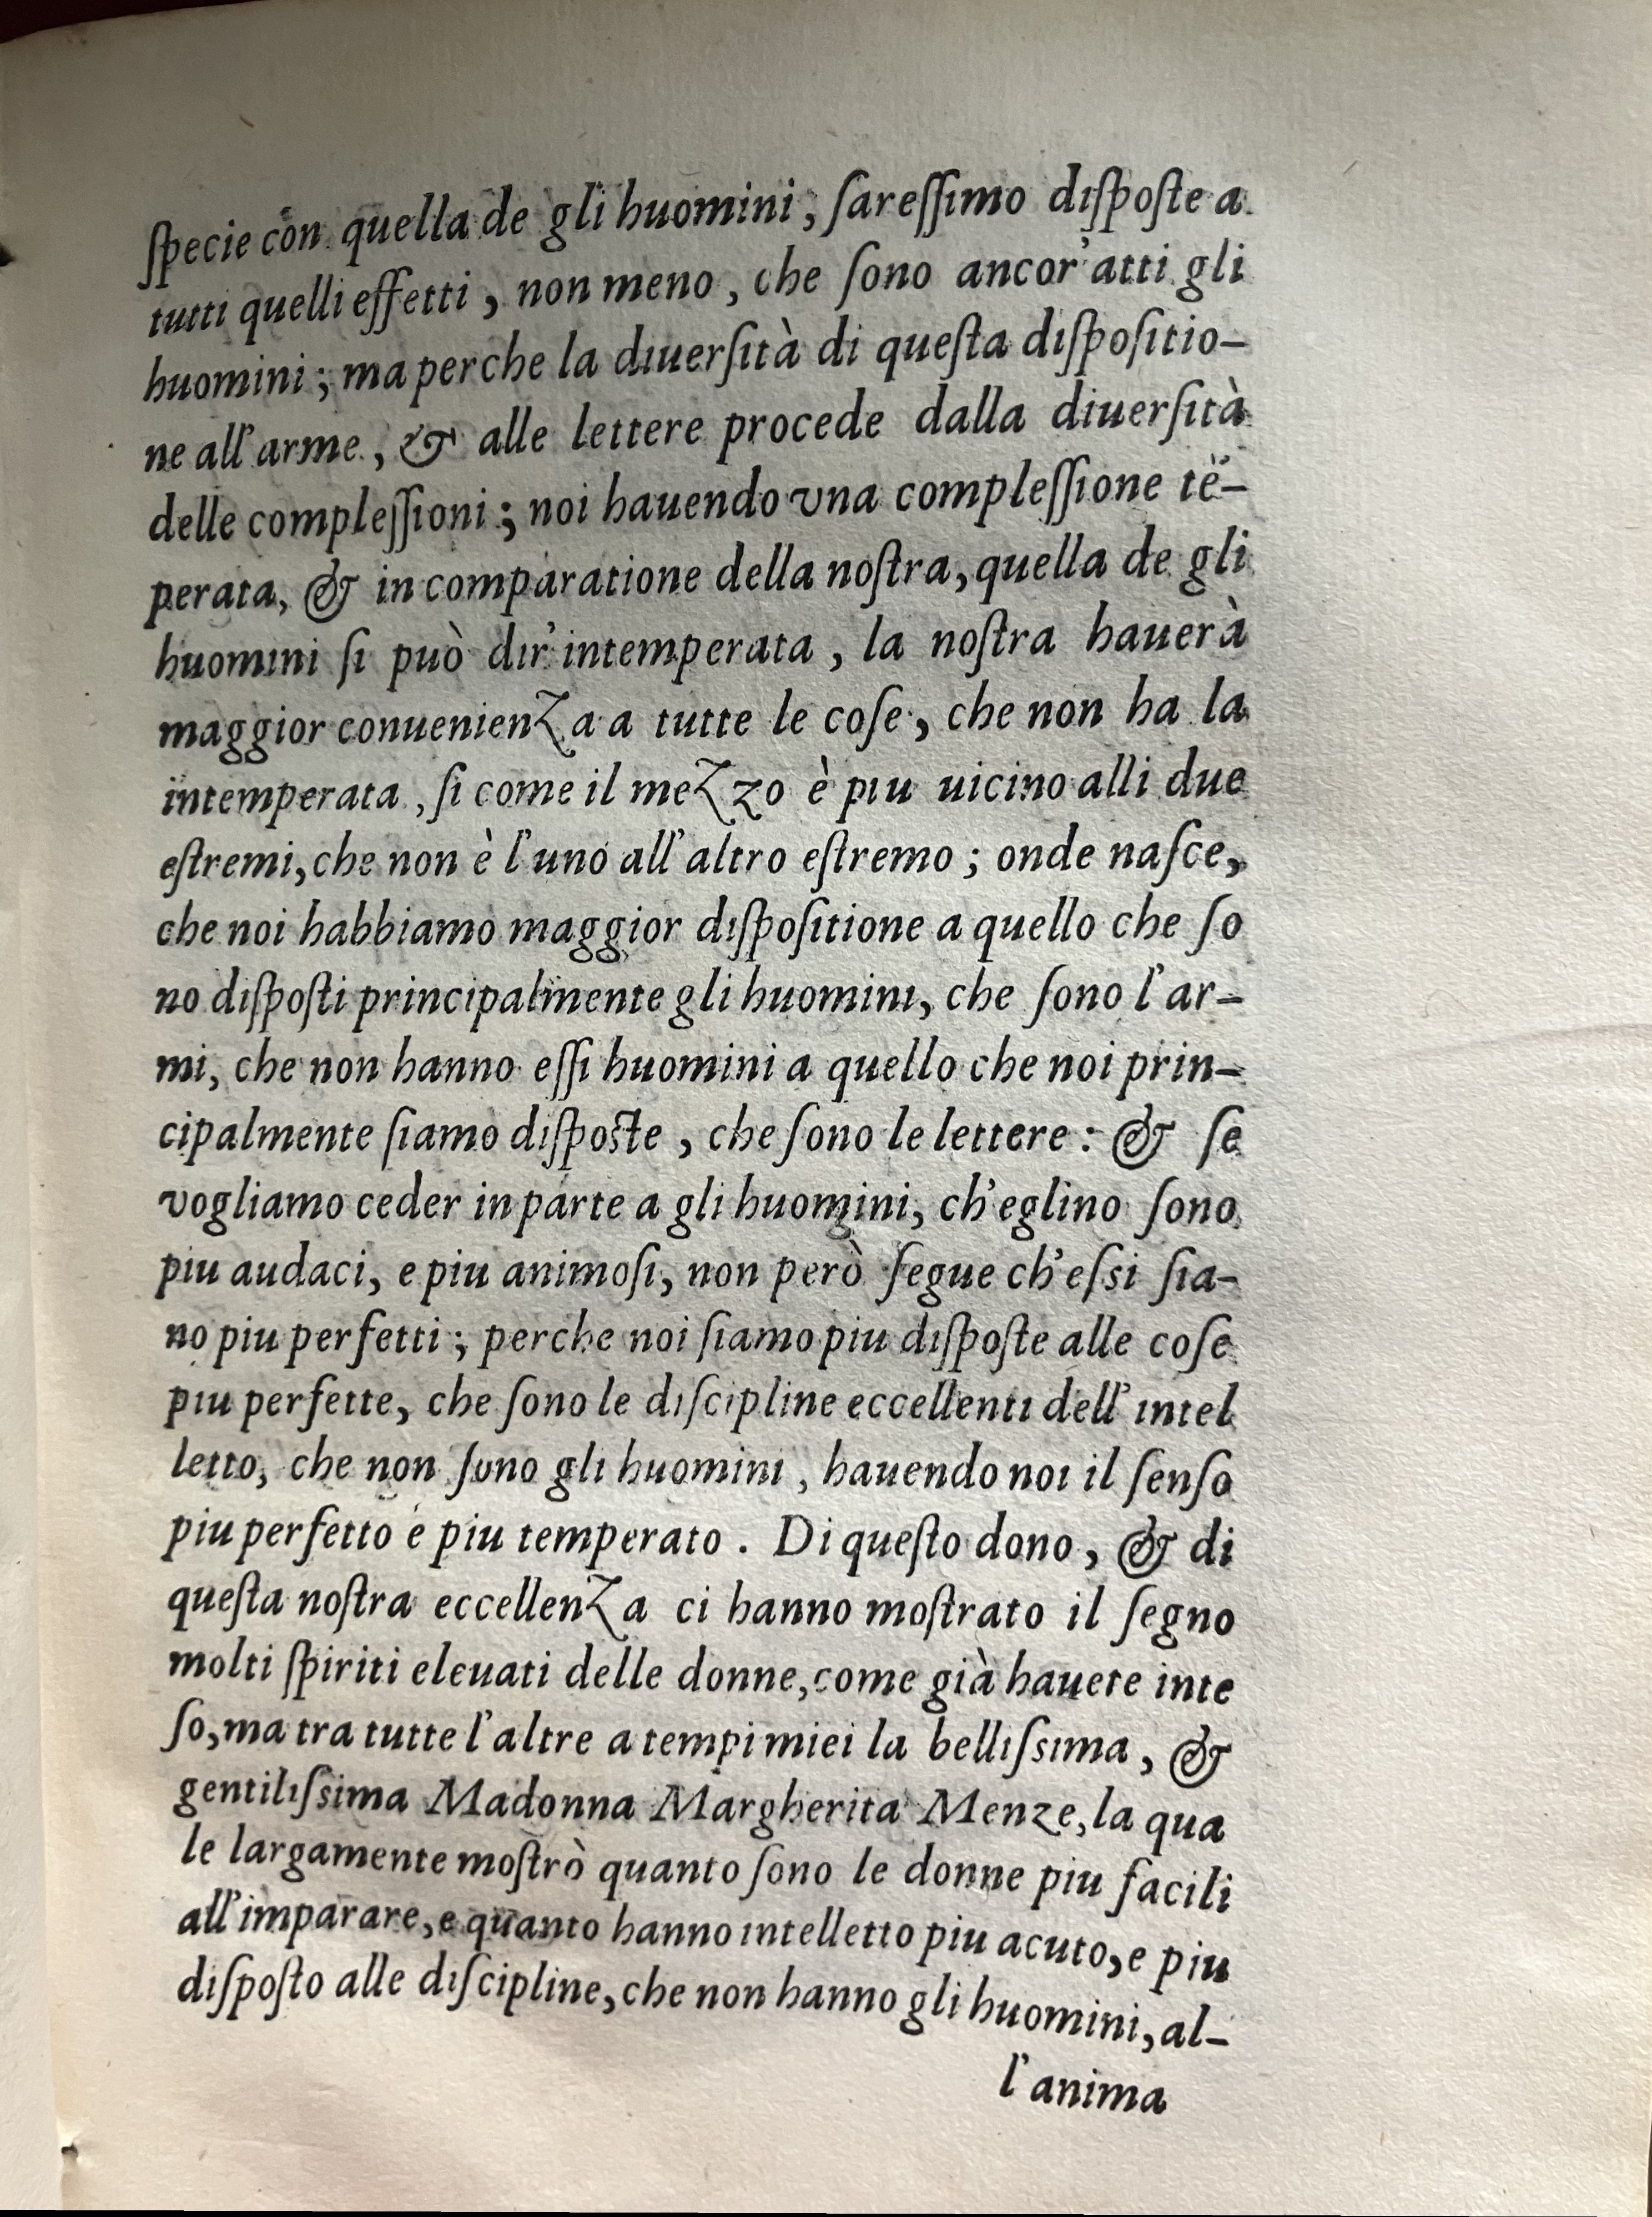 ſpecie con quella de gli huomini, ſareſſimo diſpoſte a
tutti quelli effetti, non meno, che ſono ancor'atti gli
huomini; ma perche la diuerſità di queſta diſpoſitio-
ne all'arme, & alle lettere procede dalla diuerſità
delle compleſſioni; noi hauendo vna compleſſione tẽ-
perata, & in comparatione della noſtra, quella de gli
huomini ſi può dir'intemperata, la noſtra hauerà
maggior conuenienza a tutte le coſe, che non ha la
intemperata, ſi come il mezzo è piu uicino alli due
eſtremi, che non è l'uno all'altro eſtremo; onde naſce,
che noi habbiamo maggior diſpoſitione a quello che ſo
no diſpoſti principalmente gli huomini, che ſono l'ar-
mi, che non hanno eſſi huomini a quello che noi prin-
cipalmente ſiamo diſpoſte, che ſono le lettere: & ſe
vogliamo ceder in parte a gli huomini, ch'eglino ſono
piu audaci, e piu animoſi, non però ſegue ch'eſsi ſia-
no piu perfetti; perche noi ſiamo piu diſpoſte alle coſe
piu perfette, che ſono le diſcipline eccellenti dell'intel
letto, che non ſono gli huomini, hauendo noi il ſenſo
piu perfetto e piu temperato. Di queſto dono, & di
queſta noſtra eccellenza ci hanno moſtrato il ſegno
molti ſpiriti eleuati delle donne, come già hauete inte
ſo, ma tra tutte l'altre a tempi miei la belliſsima, &
gentiliſsima Madonna Margherita Menze, la qua
le largamente moſtrò quanto ſono le donne piu facili
all'imparare, e quanto hanno intelletto piu acuto, e piu
diſpoſto alle diſcipline, che non hanno gli huomini, al-
l'anima